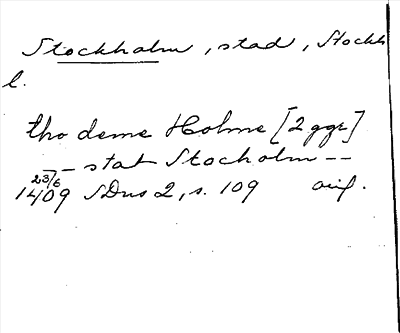 Stockholm, stad, Stockh
l.
tho deme Holme [2 ggr]
-- stat Stocholm --
23/6
1409 SDns 2, s. 109 avs.